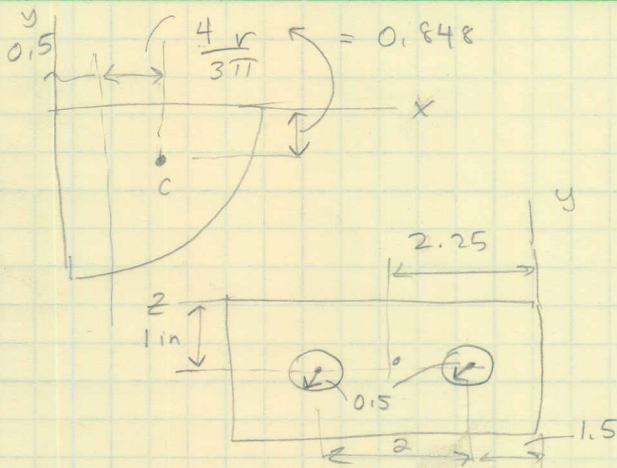 y
0.5
4 r
3π
= 0.848
x
C
y
2.25
z
1 in
0.5
2
1.5